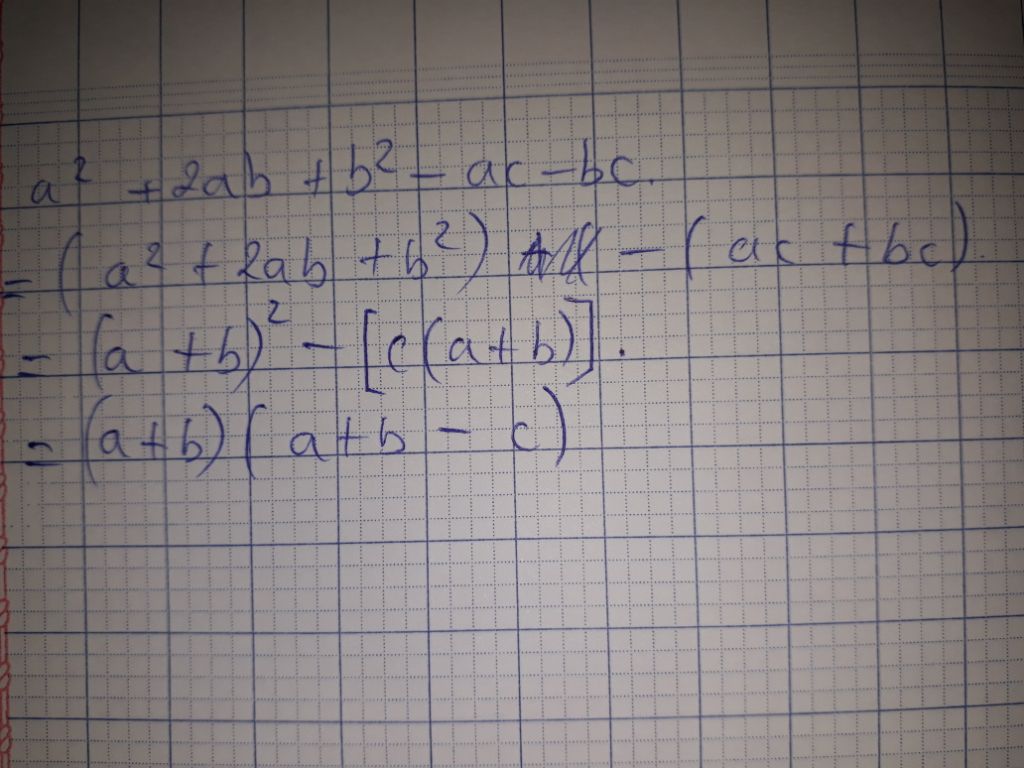 a² + 2ab + b² - ac - bc.
= (a² + 2ab + b²) - (ac + bc).
= (a + b)² - [c(a+b)].
= (a+b)(a+b - c)